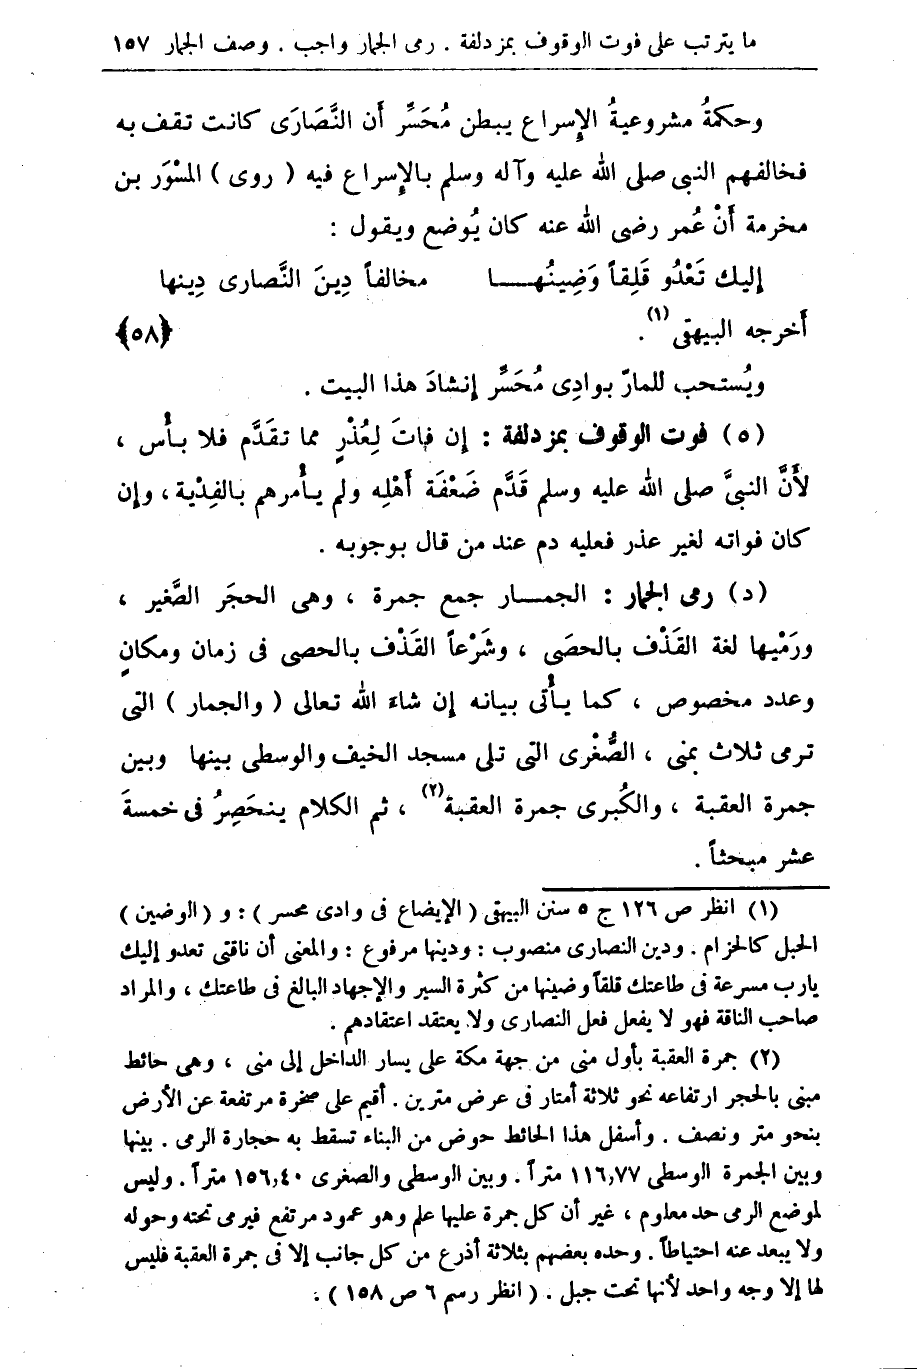 ما يترتب على فوت الوقوف بمزدلفة . رمى الجمار واجب . وصف الجمار ١٥٧
وحكمةُ مشروعيةُ الإسراع يبطن مُحَسِّر أن النَّصَارَى كانت تقف به
فخالفهم النبى صلى الله عليه وآله وسلم بالإسراع فيه ( روى ) المسْوَر بن
مخرمة أَنْ عُمر رضى الله عنه كان يُوضع ويقول :
إليك تَعْدُو قَلِقاً وَضِينُهــا مخالفاً دِينَ النَّصارى دِينها
أخرجه البيهقى (١) . {٥٨}
ويُستحب للمارّ بوادى مُحَسِّر إنشادَ هذا البيت .
(٥) فوت الوقوف بمزدلفة : إن فاتَ لِعُذْرٍ مما تقدَّم فلا بأس ،
لأَنَّ النبىَّ صلى الله عليه وسلم قَدَّم ضَعْفَة أَهْلِه ولم يأمرهم بالفِدْية ، وإن
كان فواته لغير عذر فعليه دم عند من قال بوجوبه .
(د) رمى الجمار : الجمــار جمع جمرة ، وهى الحجَر الصَّغير ،
ورَمْيها لغة القَذْف بالحصَى ، وشَرْعاً القَذْف بالحصى فى زمان ومكانٍ
وعدد مخصوص ، كما يأتى بيانه إن شاءَ الله تعالى ( والجمار ) التى
ترمى ثلاث بمنى ، الصُّغْرى التى تلى مسجد الخيف والوسطى بينها وبين
جمرة العقبة ، والكُبرى جمرة العقبة(٢) ، ثم الكلام ينحَصِرُ فى خمسةَ
عشر مبحثاً .
(١) انظر ص ١٢٦ ج ٥ سنن البيهقى ( الإيضاع فى وادى محسر ) : و ( الوضين )
الحبل كالحزام . ودين النصارى منصوب : ودينها مرفوع : والمعنى أن ناقتى تعدو إليك
يارب مسرعة فى طاعتك قلقاً وضينها من كثرة السير والإجهاد البالغ فى طاعتك ، والمراد
صاحب الناقة فهو لا يفعل فعل النصارى ولا يعتقد اعتقادهم .
(٢) جمرة العقبة بأول منى من جهة مكة على يسار الداخل إلى منى ، وهى حائط
مبنى بالحجر ارتفاعه نحو ثلاثة أمتار فى عرض مترين . أقيم على صخرة مرتفعة عن الأرض
بنحو متر ونصف . وأسفل هذا الحائط حوض من البناء تسقط به حجارة الرمى . بينها
وبين الجمرة الوسطى ١١٦,٧٧ متراً . وبين الوسطى والصغرى ١٥٦,٤٠ متراً . وليس
لموضع الرمى حد معلوم ، غير أن كل جمرة عليها علم وهو عمود مرتفع فيرمى تحته وحوله
ولا يبعد عنه احتياطاً . وحده بعضهم بثلاثة أذرع من كل جانب إلا فى جمرة العقبة فليس
لها إلا وجه واحد لأنها تحت جبل . ( انظر رسم ٦ ص ١٥٨ ) .